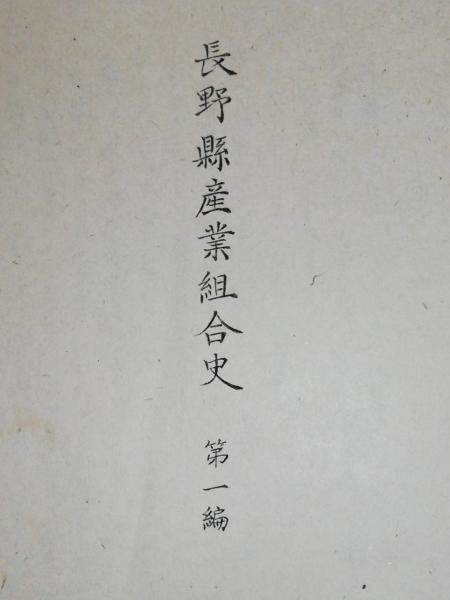 長野縣産業組合史 第一編